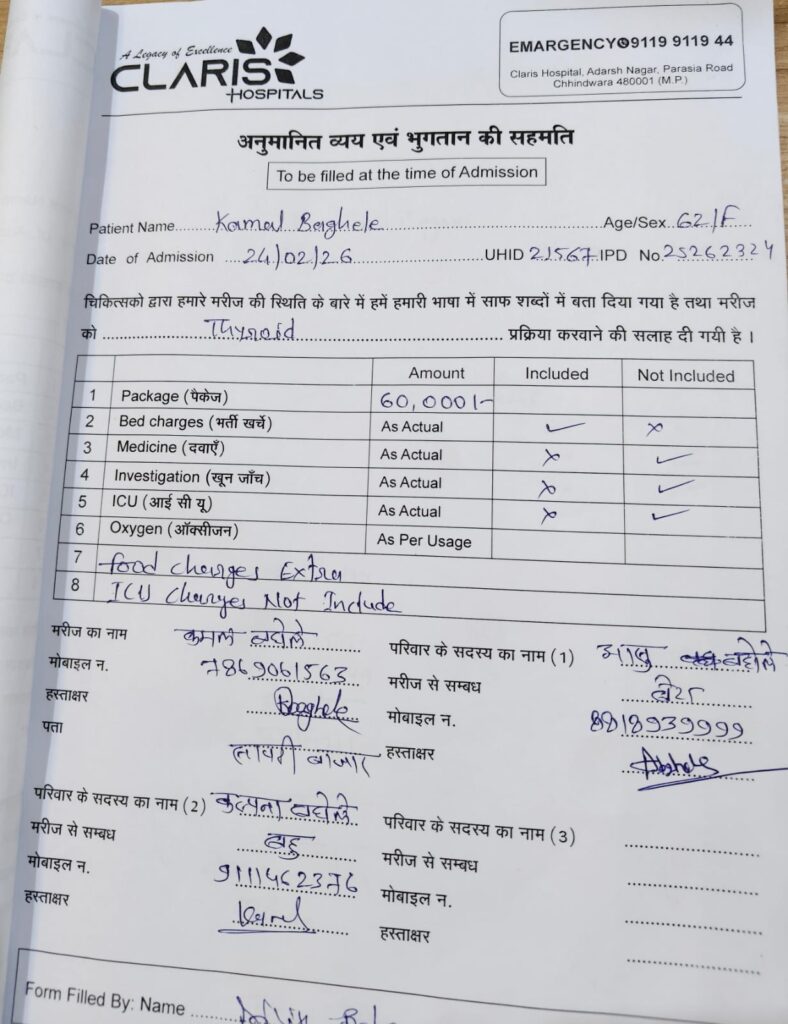 A Legacy of Excellence
CLARIS
HOSPITALS
EMARGENCY 9119 9119 44
Claris Hospital, Adarsh Nagar, Parasia Road
Chhindwara 480001 (M.P.)
अनुमानित व्यय एवं भुगतान की सहमति
To be filled at the time of Admission
Patient Name Kamal Baghele Age/Sex 62/F
Date of Admission 24/02/26 UHID 21567 IPD No. 25262324
चिकित्सको द्वारा हमारे मरीज की स्थिति के बारे में हमें हमारी भाषा में साफ शब्दों में बता दिया गया है तथा मरीज
को Thyroid प्रक्रिया करवाने की सलाह दी गयी है ।
Amount Included Not Included
1 Package (पैकेज) 60,000/-
2 Bed charges (भर्ती खर्चे) As Actual ✓ ×
3 Medicine (दवाएँ) As Actual × ✓
4 Investigation (खून जाँच) As Actual × ✓
5 ICU (आई सी यू) As Actual × ✓
6 Oxygen (ऑक्सीजन) As Per Usage
7 food charges Extra
8 ICU Charges Not Include
मरीज का नाम कमल बघेले परिवार के सदस्य का नाम (1) बघेले
मोबाइल न. 7869061563 मरीज से सम्बध बेटा
हस्ताक्षर Baghele मोबाइल न. 8818939999
पता बाजार हस्ताक्षर
परिवार के सदस्य का नाम (2) कल्पना बघेले परिवार के सदस्य का नाम (3)
मरीज से सम्बध बहु मरीज से सम्बध
मोबाइल न. 9111462376 मोबाइल न.
हस्ताक्षर हस्ताक्षर
Form Filled By: Name